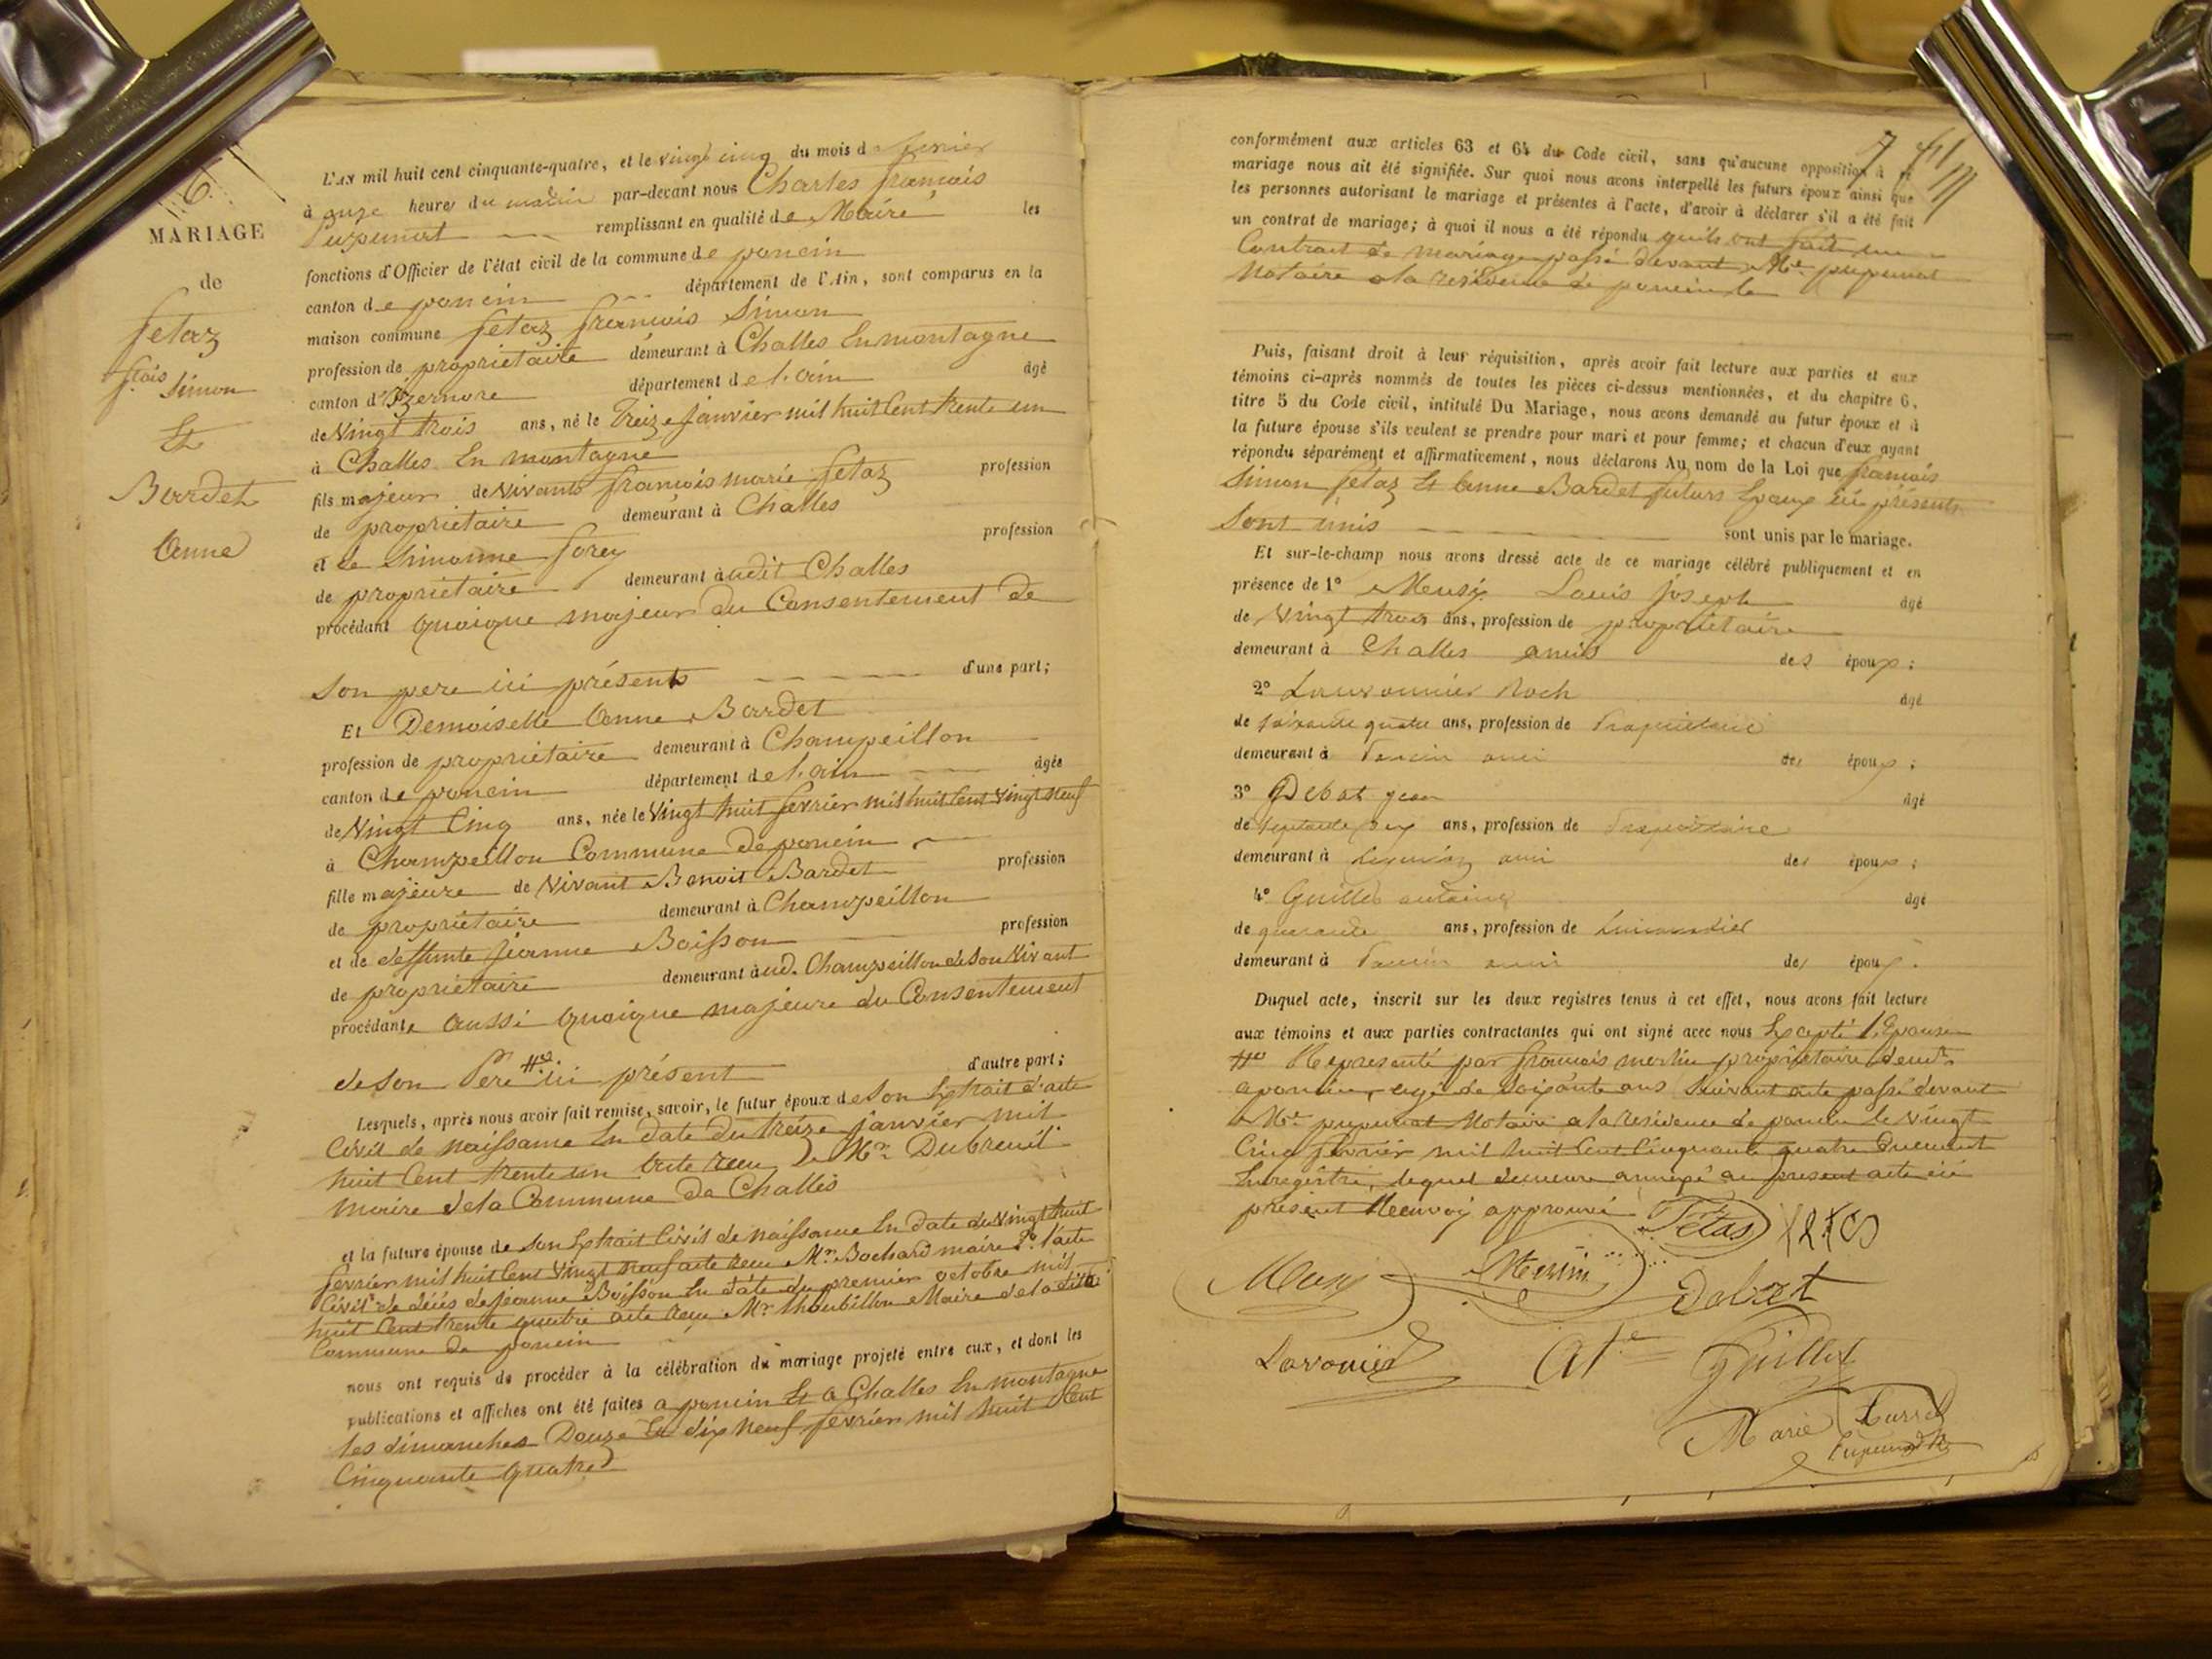 6
MARIAGE
de
fetaz
f.çois Simon
Et
Bardet
Anne
L'AN mil huit cent cinquante-quatre, et le vingt cinq du mois d fevrier
à onze heures du matin par-devant nous Charles francois
Pupunat remplissant en qualité de Maire les
fonctions d'Officier de l'état civil de la commune de poncin
canton de poncin département de l'Ain, sont comparus en la
maison commune fetaz francois Simon
profession de propriétaire demeurant à Challes En montagne
canton d'Izernore département de l'ain âgé
de Vingt trois ans, né le Treize janvier mil huit Cent trente un
à Challes En montagne
fils majeur de vivants francois marie fetaz profession
de propriétaire demeurant à Challes
et de Simonne forey profession
de propriétaire demeurant audit Challes
procédant quoique majeur du Consentement de
son pere ici présents d'une part;
Et Demoiselle Anne Bardet
profession de propriétaire demeurant à Champeillon
canton de poncin département de l'ain âgée
de Vingt Cinq ans, née le Vingt huit fevrier mil huit Cent Vingt neuf
à Champeillon Commune de poncin
fille majeure de Vivant Benoit Bardet profession
de propriétaire demeurant à Champeillon
et de deffunte jeanne Boisson profession
de propriétaire demeurant aud. Champeillon de son Vivant
procédante aussi quoique majeure du Consentement
de son Père ici présent d'autre part;
Lesquels, après nous avoir fait remise, savoir, le futur époux de son Extrait d'acte
Civil de naissance En date du treize janvier mil
huit Cent trente un acte recu Mr. Dubreuil
maire de la Commune de Challes
et la future épouse de son Extrait Civil de naissance En date du Vingt huit
fevrier mil huit Cent Vingt neuf acte recu Mr. Bochard maire 2º l'acte
Civil de décès de jeanne Boisson En date du premier octobre mil
huit Cent trente quatre acte recu Mr. Maire de la dite
Commune de poncin
nous ont requis de procéder à la célébration du mariage projeté entre eux, et dont les
publications et affiches ont été faites a poncin Et a Challes En montagne
les dimanches Douze Et dix neuf fevrier mil huit Cent
Cinquante quatre
7
conformément aux articles 63 et 64 du Code civil, sans qu'aucune opposition à ce
mariage nous ait été signifiée. Sur quoi nous avons interpellé les futurs époux ainsi que
les personnes autorisant le mariage et présentes à l'acte, d'avoir à déclarer s'il a été fait
un contrat de mariage; à quoi il nous a été répondu quils ont fait un
Contrat de mariage passé devant Me. pupunat
Notaire a la résidence de poncin le
Puis, faisant droit à leur réquisition, après avoir fait lecture aux parties et aux
témoins ci-après nommés de toutes les pièces ci-dessus mentionnées, et du chapitre 6,
titre 5 du Code civil, intitulé Du Mariage, nous avons demandé au futur époux et à
la future épouse s'ils veulent se prendre pour mari et pour femme; et chacun d'eux ayant
répondu séparément et affirmativement, nous déclarons Au nom de la Loi que francois
Simon fetaz Et Anne Bardet futurs Epoux ici présents
Sont unis sont unis par le mariage.
Et sur-le-champ nous avons dressé acte de ce mariage célébré publiquement et en
présence de 1º Louis joseph âgé
de Vingt trois ans, profession de propriétaire
demeurant à Challes amis des époux;
2º Roch âgé
de soixante quatre ans, profession de Propriétaire
demeurant à Poncin ami des époux;
3º Debat jean âgé
de ans, profession de Propriétaire
demeurant à ami des époux;
4º Guillet antoine âgé
de quarante ans, profession de
demeurant à Poncin ami des époux.
Duquel acte, inscrit sur les deux registres tenus à cet effet, nous avons fait lecture
aux témoins et aux parties contractantes qui ont signé avec nous Excepté l'Epouse
Représenté par francois propriétaire demt.
a poncin, agé de soixante ans Suivant acte passé devant
Me. pupunat Notaire a la résidence de poncin le vingt
Cinq fevrier mil huit Cent Cinquante quatre Duement
Enregistré, lequel demeure annexé au present acte ici
présent Renvoi approuvé Fétas
Debat
Guillet
Marie